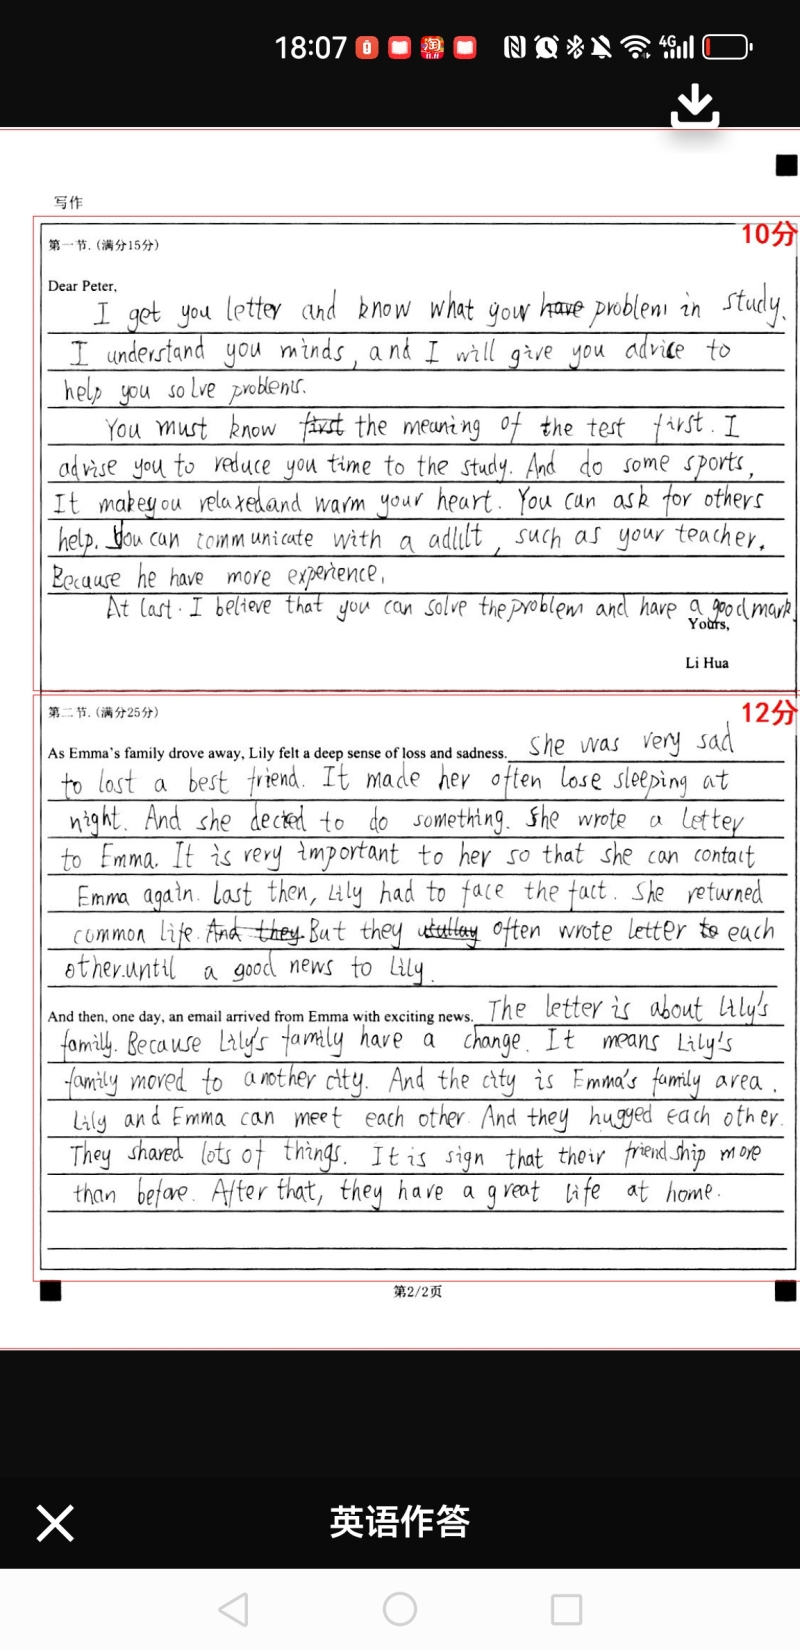 18:07
4G
写作
10分
第一节.(满分15分)
Dear Peter,
I get you letter and know what your have problem in study.
I understand you minds, and I will give you advice to
help you solve problems.
You must know first the meaning of the test first. I
advise you to reduce you time to the study. And do some sports,
It makeyou relaxedand warm your heart. You can ask for others
help. You can communicate with a adult, such as your teacher.
Because he have more experience.
At last. I believe that you can solve the problem and have a good mark.
Yours,
Li Hua
12分
第二节.(满分25分)
As Emma's family drove away, Lily felt a deep sense of loss and sadness. She was very sad
to lost a best friend. It made her often lose sleeping at
night. And she decied to do something. She wrote a letter
to Emma. It is very important to her so that she can contact
Emma again. Last then, Lily had to face the fact. She returned
common life. And they But they often wrote letter to each
other.until a good news to Lily.
And then, one day, an email arrived from Emma with exciting news. The letter is about Lily's
family. Because Lily's family have a change. It means Lily's
family moved to another city. And the city is Emma's family area.
Lily and Emma can meet each other. And they hugged each other.
They shared lots of things. It is sign that their friendship more
than before. After that, they have a great life at home.
第2/2页
英语作答